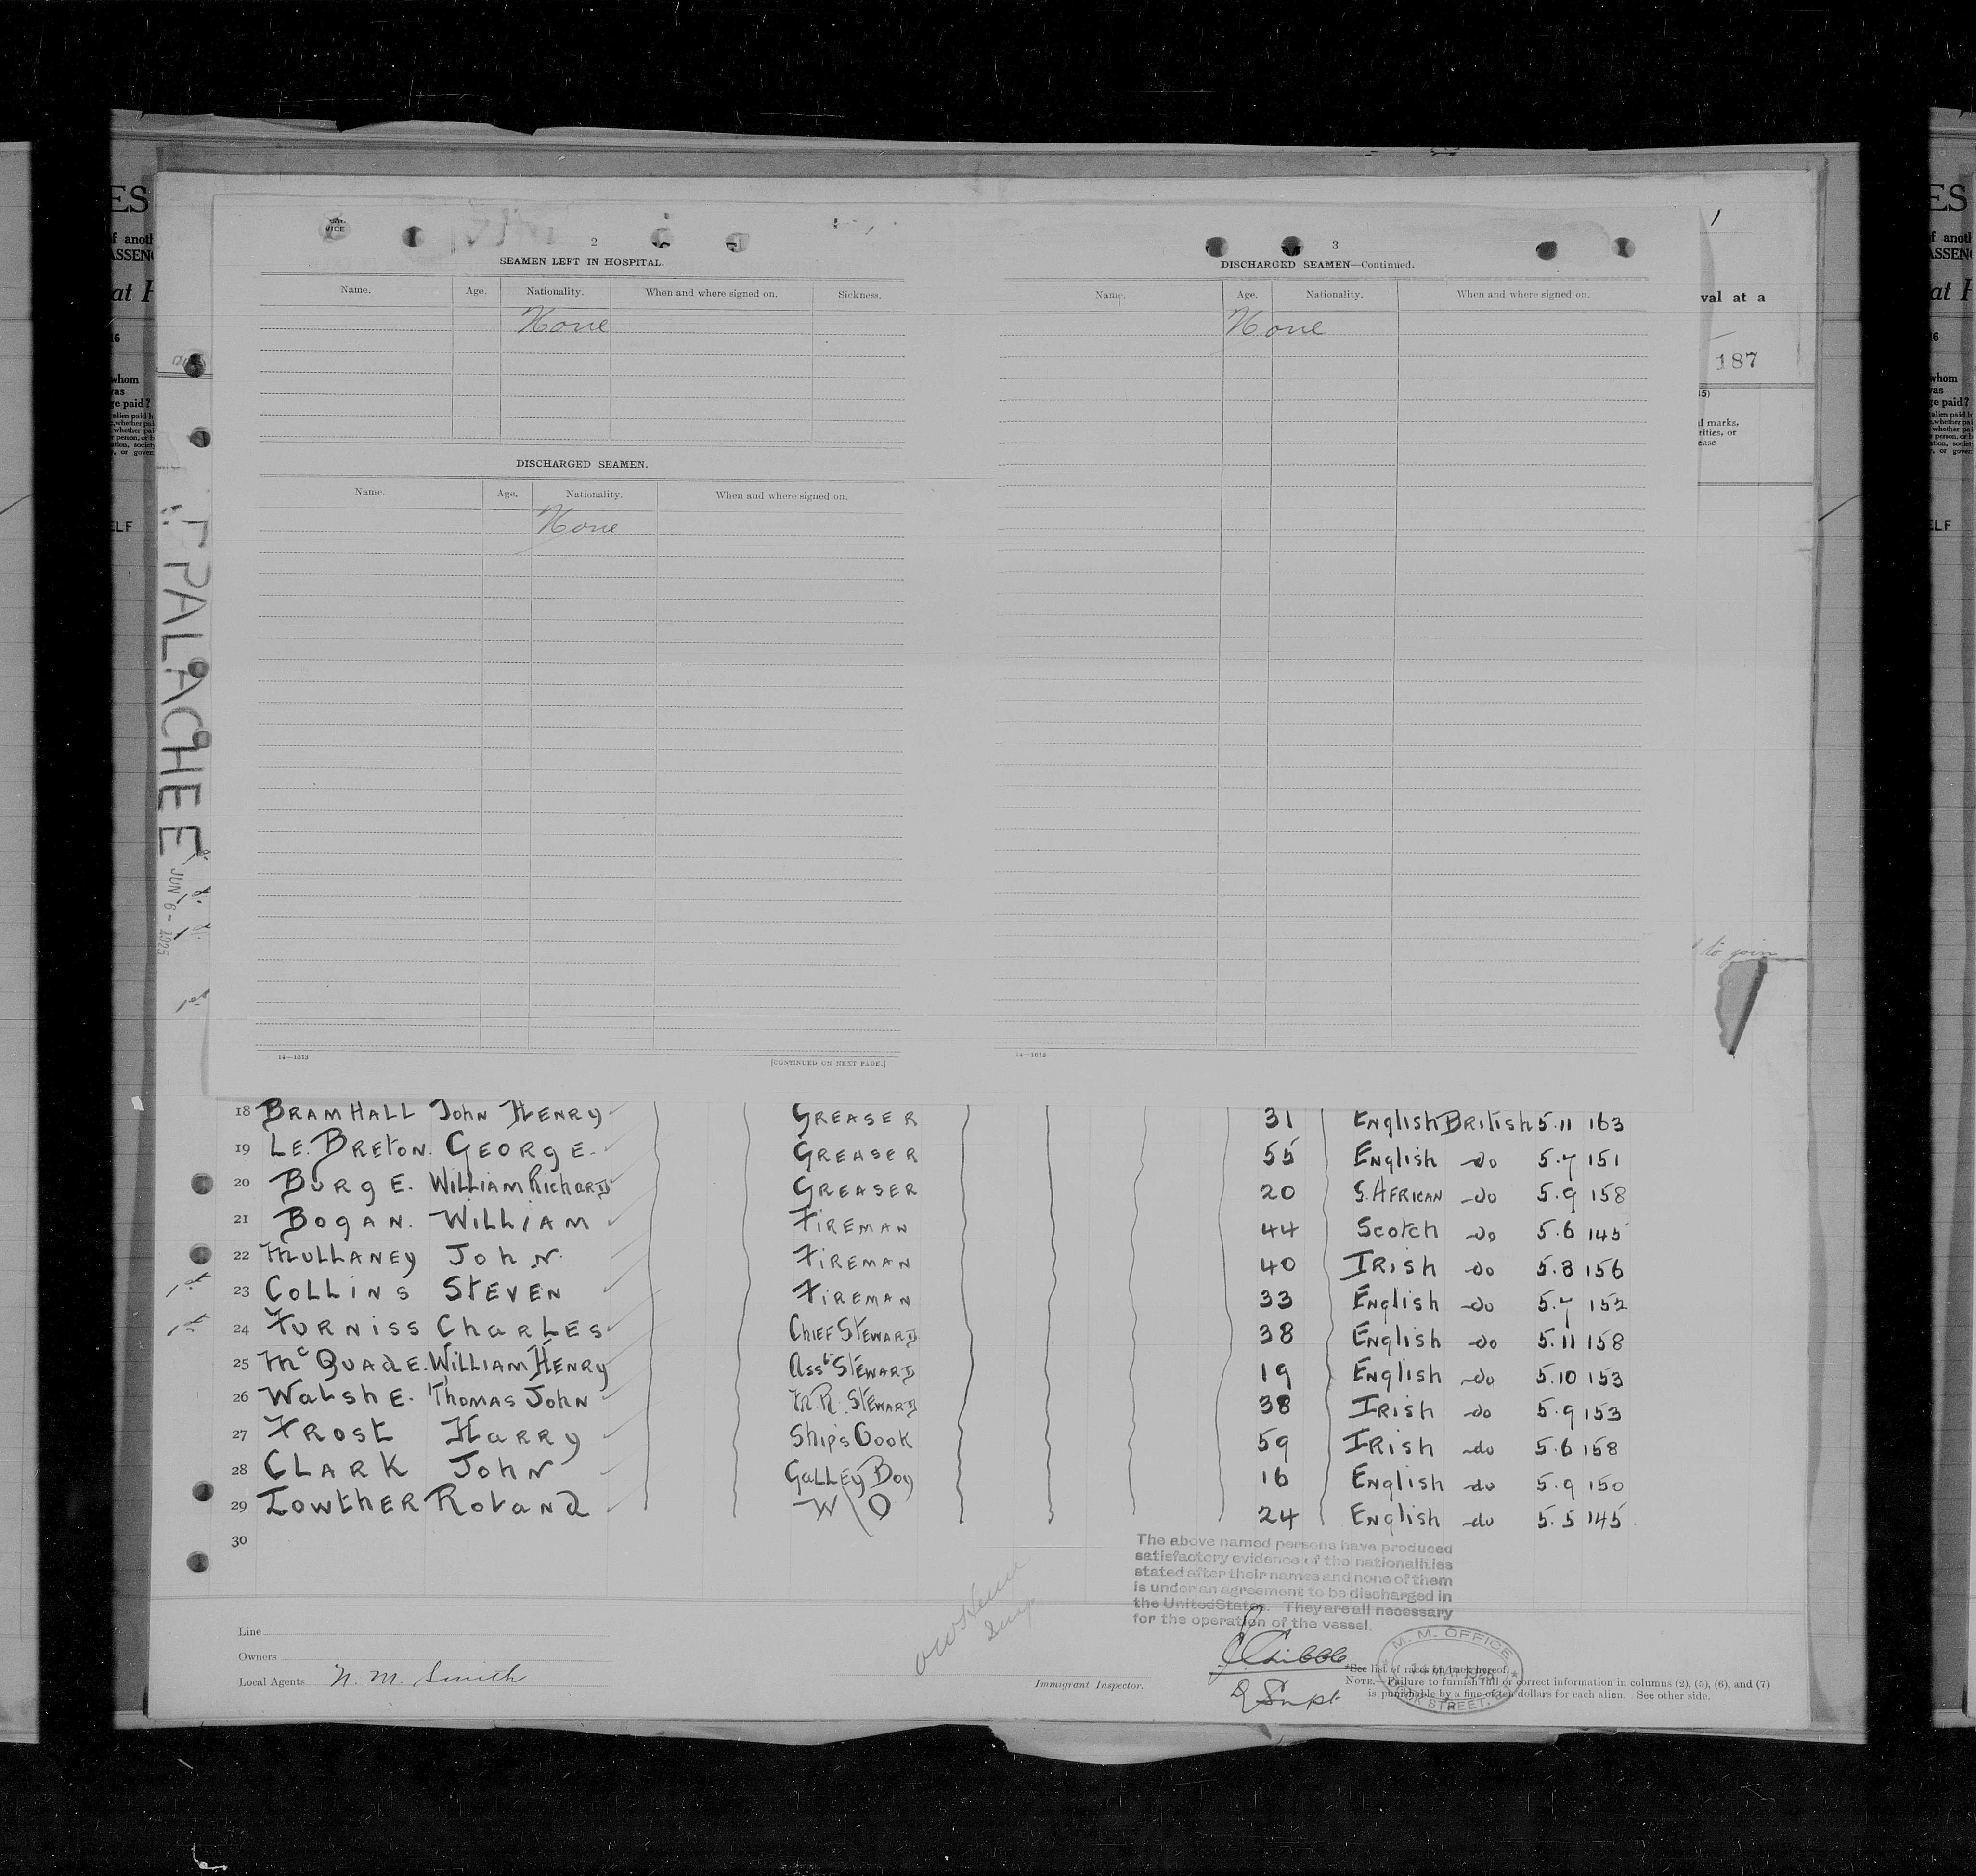 2
SEAMEN LEFT IN HOSPITAL.
Name. Age. Nationality. When and where signed on. Sickness.
None
DISCHARGED SEAMEN.
Name. Age. Nationality. When and where signed on.
None
14—1613 [CONTINUED ON NEXT PAGE.]
3
DISCHARGED SEAMEN—Continued.
Name. Age. Nationality. When and where signed on.
None
14—1613
1
val at a
187
to join
PALACHEE
JUN 6 - 1925
18 BRAMHALL John HENRY GREASER 31 English British 5.11 163
19 LE. BRETON. GEORGE. GREASER 55 English do 5.7 151
20 BURGE. WILLIAM RICHARD GREASER 20 S. AFRICAN do 5.9 158
21 BOGAN. WILLIAM FIREMAN 44 Scotch do 5.6 145
22 MULLANEY JOHN. FIREMAN 40 IRish do 5.8 156
23 COLLINS STEVEN FIREMAN 33 English do 5.7 152
24 FURNISS CHARLES CHIEF STEWARD 38 English do 5.11 158
25 McQUADE. WILLIAM HENRY Asst STEWARD 19 English do 5.10 153
26 WALSHE. THOMAS JOHN M.R. STEWARD 38 IRish do 5.9 153
27 FROST HARRY Ship's Cook 59 IRish do 5.6 158
28 CLARK JOHN GALLEY BOY 16 English do 5.9 150
29 LOWTHER ROLAND W/O 24 English do 5.5 145
30
The above named persons have produced
satisfactory evidence of the nationalities
stated after their names and none of them
is under an agreement to be discharged in
the United States. They are all necessary
for the operation of the vessel.
Line
Owners
Local Agents N. M. Smith
Immigrant Inspector.
D Supt.
M. M. OFFICE
STREET.
*See list of races on back hereof.
NOTE.—Failure to furnish full or correct information in columns (2), (5), (6), and (7)
is punishable by a fine of ten dollars for each alien. See other side.